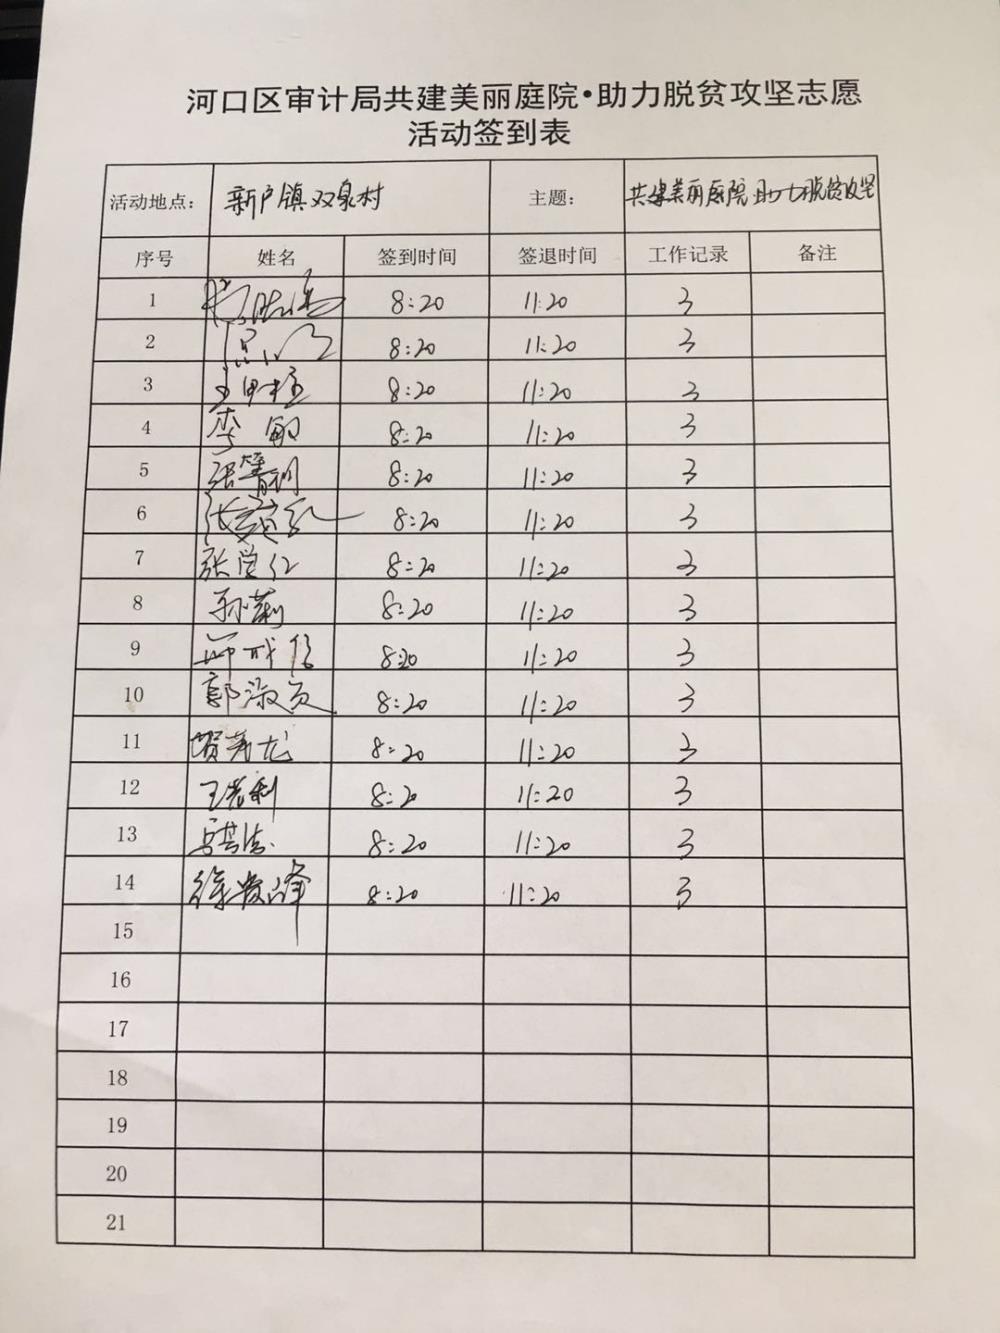 河口区审计局共建美丽庭院•助力脱贫攻坚志愿
活动签到表
活动地点： 新户镇双泉村 主题： 共建美丽庭院 助力脱贫攻坚
序号 姓名 签到时间 签退时间 工作记录 备注
1 8:20 11:20 3
2 8:20 11:20 3
3 8:20 11:20 3
4 李敏 8:20 11:20 3
5 8:20 11:20 3
6 8:20 11:20 3
7 张学仁 8:20 11:20 3
8 孙莉 8:20 11:20 3
9 8:20 11:20 3
10 郭淑贞 8:20 11:20 3
11 8:20 11:20 3
12 8:20 11:20 3
13 8:20 11:20 3
14 8:20 11:20 3
15
16
17
18
19
20
21